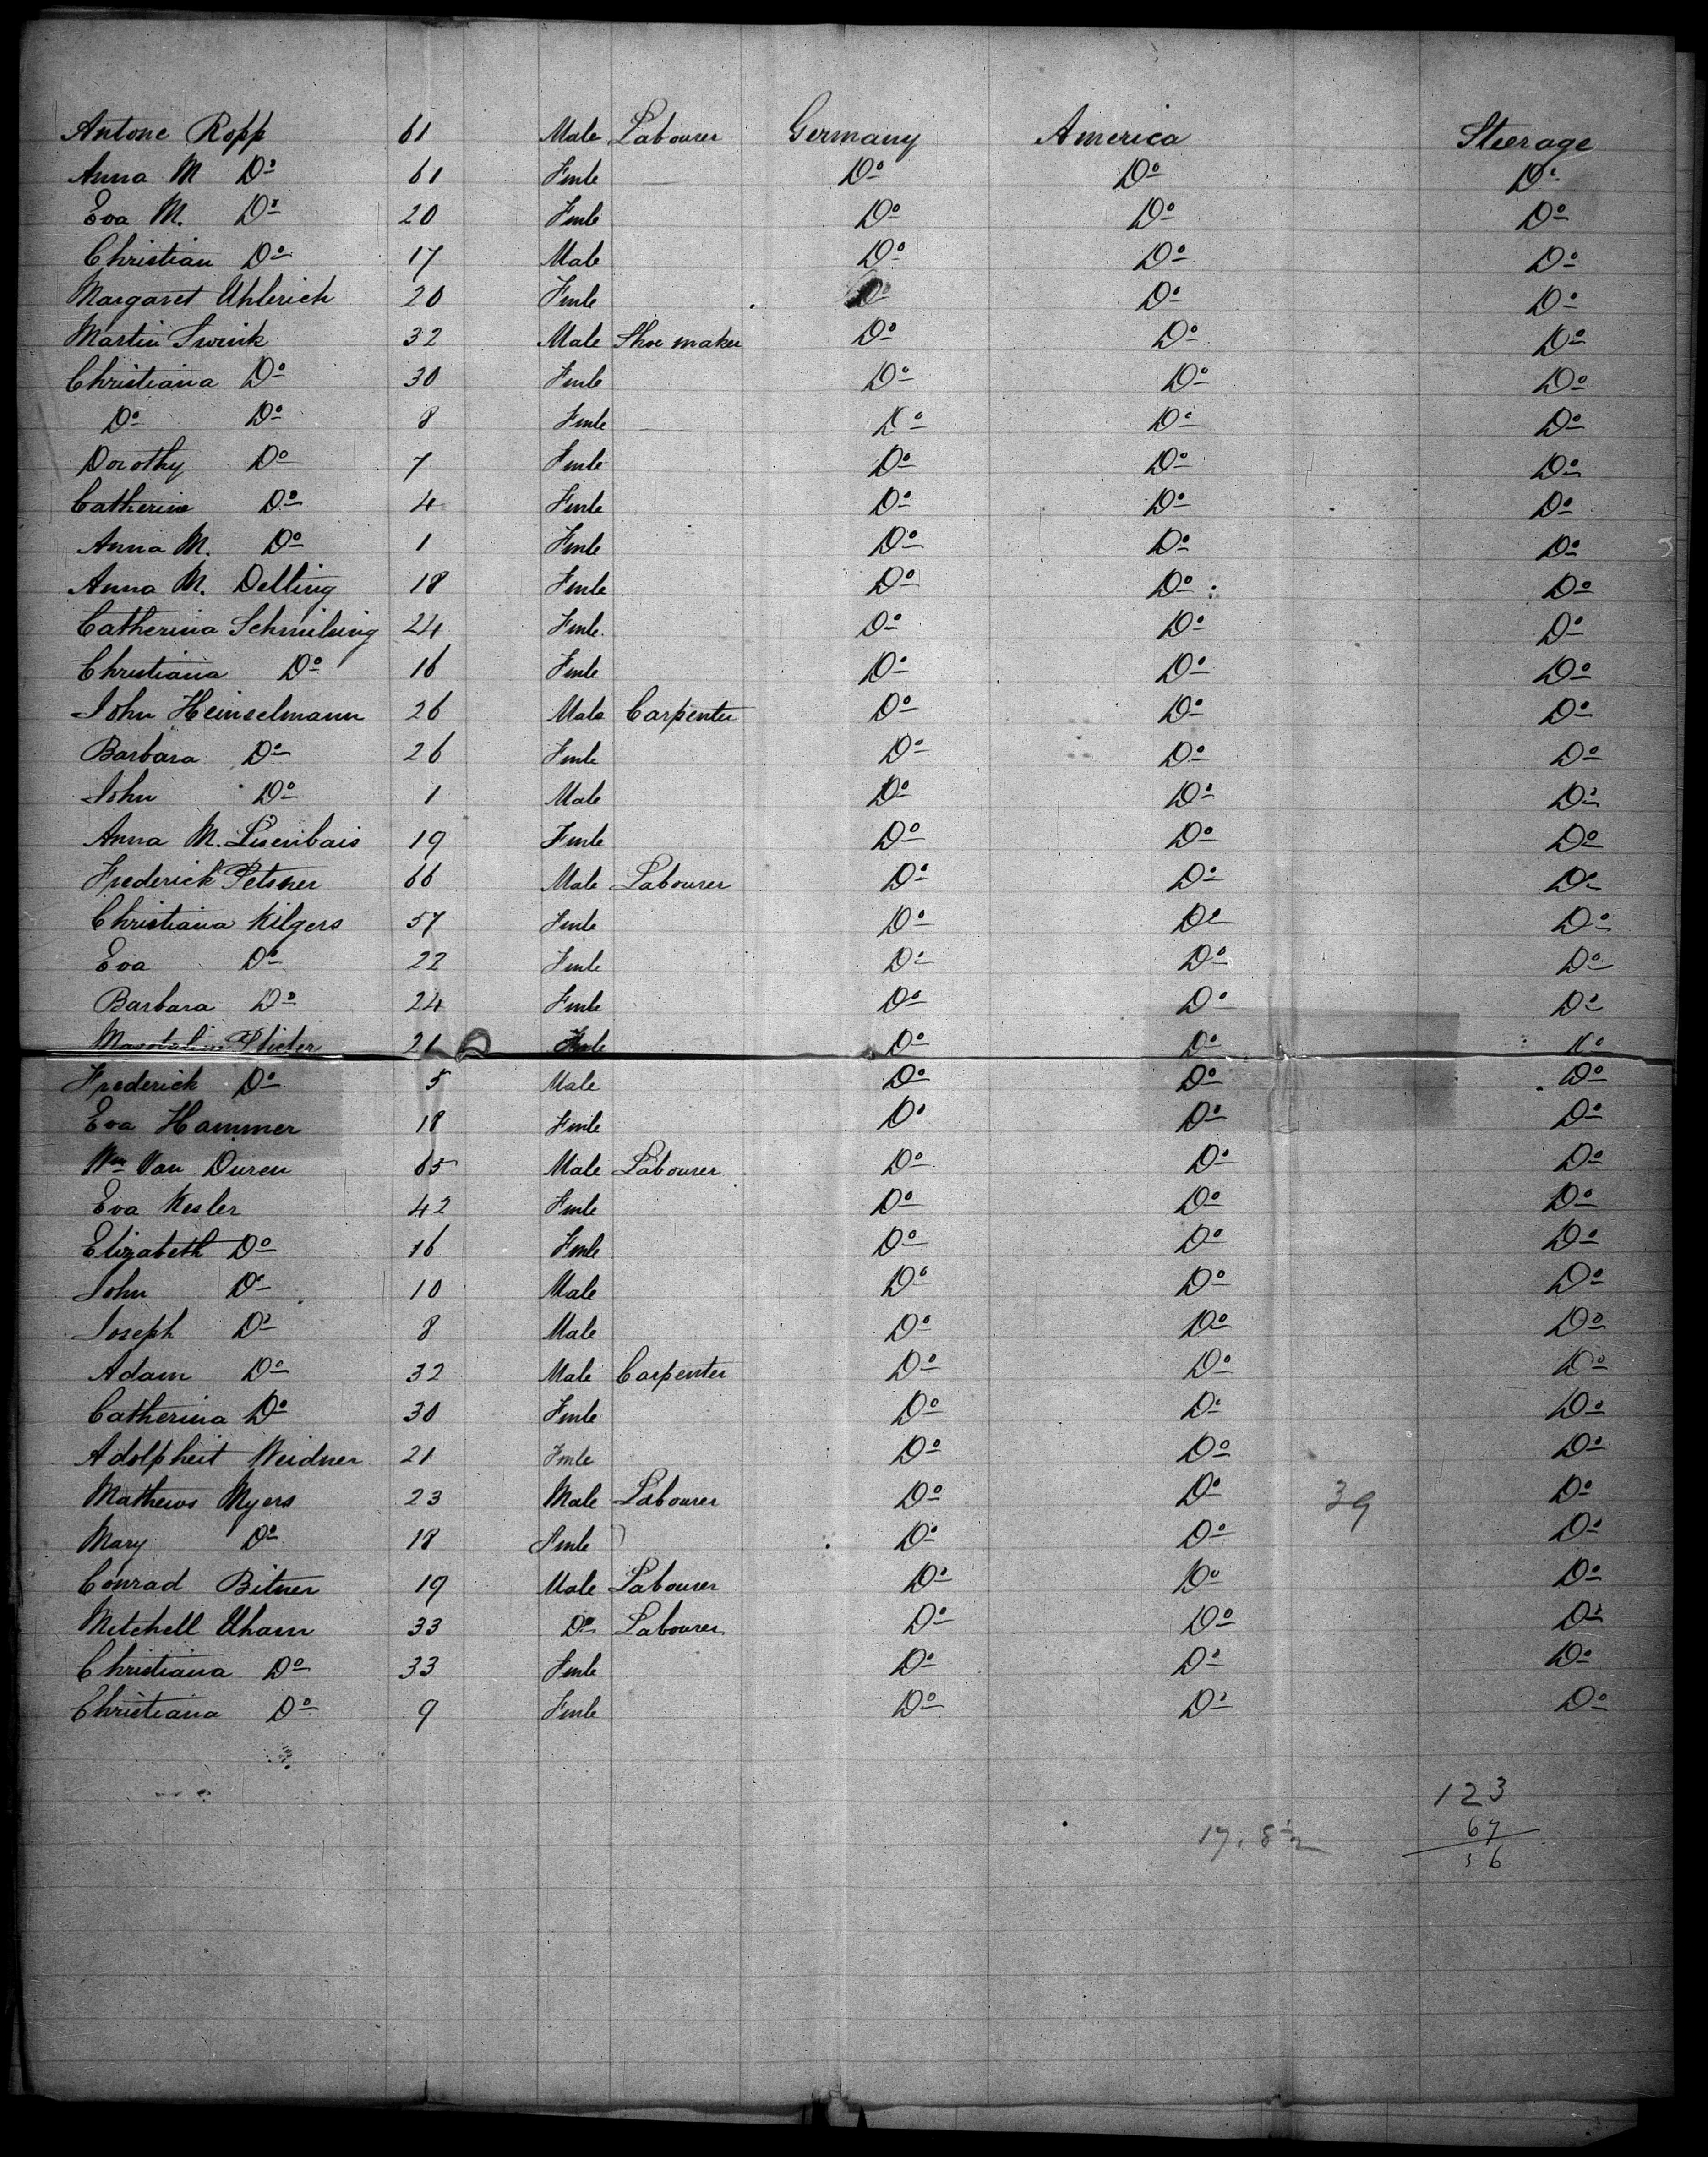 Antone Ropp 61 Male Labourer Germany America Steerage
Anna M Do 61 Fmle Do Do Do
Eva M. Do 20 Fmle Do Do Do
Christian Do 17 Male Do Do Do
Margaret Uhlerich 20 Fmle Do Do Do
Martin Swink 32 Male Shoe maker Do Do Do
Christiana Do 30 Fmle Do Do Do
Do Do 8 Fmle Do Do Do
Dorothy Do 7 Fmle Do Do Do
Catherine Do 4 Fmle Do Do Do
Anna M. Do 1 Fmle Do Do Do
Anna M. Delling 18 Fmle Do Do Do
Catherina 24 Fmle Do Do Do
Christiana Do 16 Fmle Do Do Do
John Heinselmann 26 Male Carpenter Do Do Do
Barbara Do 26 Fmle Do Do Do
John Do 1 Male Do Do Do
Anna M. Lisenbais 19 Fmle Do Do Do
Frederick Petsner 66 Male Labourer Do Do Do
Christiana Kilgers 57 Fmle Do Do Do
Eva Do 22 Fmle Do Do Do
Barbara Do 24 Fmle Do Do Do
21 Fmle Do Do Do
Frederick Do 5 Male Do Do Do
Eva Hammer 18 Fmle Do Do Do
Wm Van Duren 65 Male Labourer Do Do Do
Eva Kesler 42 Fmle Do Do Do
Elizabeth Do 16 Fmle Do Do Do
John Do 10 Male Do Do Do
Joseph Do 8 Male Do Do Do
Adam Do 32 Male Carpenter Do Do Do
Catherina Do 30 Fmle Do Do Do
Adolpheit Weidner 21 Fmle Do Do Do
Mathews Myers 23 Male Labourer Do Do 39 Do
Mary Do 18 Fmle Do Do Do
Conrad Bitner 19 Male Labourer Do Do Do
Mitchell Uham 33 Do Labourer Do Do Do
Christiana Do 33 Fmle Do Do Do
Christiana Do 9 Fmle Do Do Do
123
17. 8½ 67
56